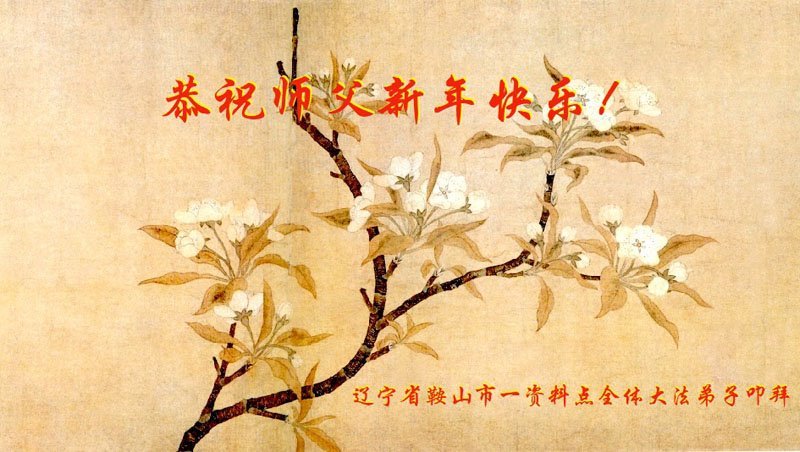 恭祝师父新年快乐！
辽宁省鞍山市一资料点全体大法弟子叩拜